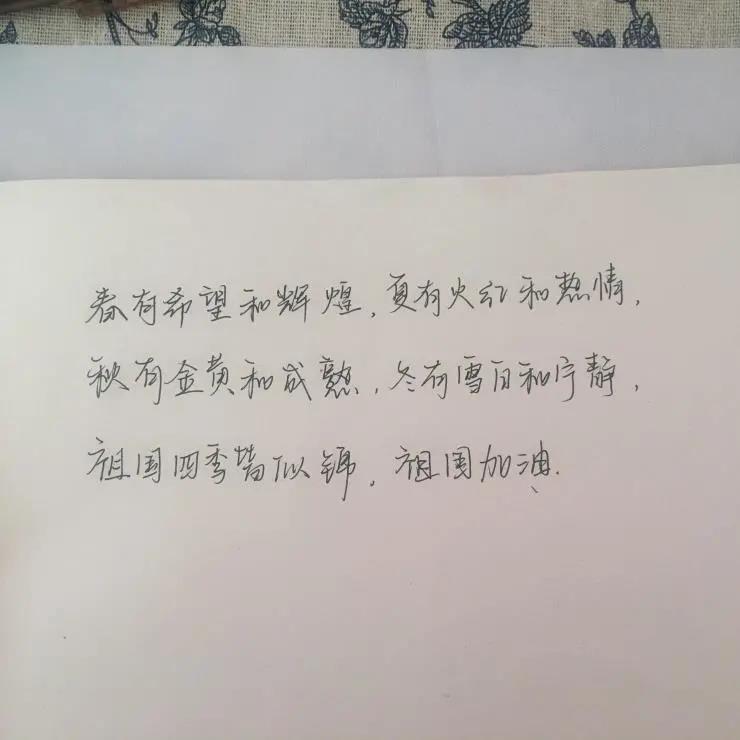 春有希望和辉煌，夏有火红和热情，
秋有金黄和成熟，冬有雪白和宁静，
祖国四季皆似锦，祖国加油.